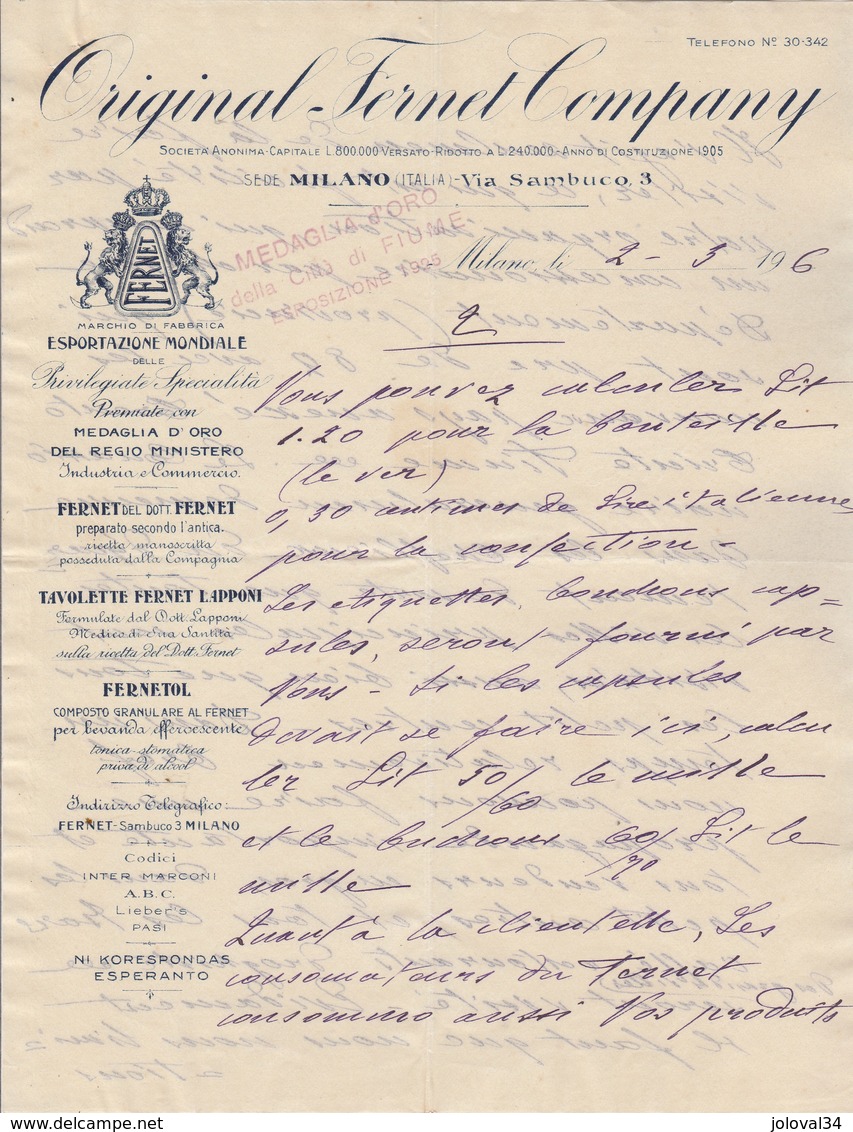 TELEFONO Nº 30-342
Original Fernet Company
SOCIETÀ ANONIMA-CAPITALE L.800.000 VERSATO-RIDOTTO A L.240.000-ANNO DI COSTITUZIONE 1905
SEDE MILANO (ITALIA)-VIA SAMBUCO, 3
MEDAGLIA d'ORO
della Città di FIUME
ESPOSIZIONE 1925
Milano, li 2-3 1926
FERNET
MARCHIO DI FABBRICA
ESPORTAZIONE MONDIALE
DELLE
Privilegiate Specialità
Premiate con
MEDAGLIA D'ORO
DEL REGIO MINISTERO
Industria e Commercio.
FERNET DEL DOTT. FERNET
preparato secondo l'antica
ricetta manoscritta
posseduta dalla Compagnia
TAVOLETTE FERNET LAPPONI
Formulate dal Dott. Lapponi
Medico di Sua Santità
sulla ricetta del Dott. Fernet
FERNETOL
COMPOSTO GRANULARE AL FERNET
per bevanda effervescente
tonica-stomatica
priva di alcool
Indirizzo Telegrafico:
FERNET-Sambuco 3 MILANO
Codici
INTER MARCONI
A.B.C.
Lieber's
PASI
NI KORESPONDAS
ESPERANTO
2
Vous pouvez calculer Lit
1.20 pour la bouteille
(le ver)
0,30 centimes de Lire italienne
pour la confection -
Les etiquettes, bondrons cap=
sules, seront fourni par
Vous - Si les capsules
devait se faire ici, calcu
ler Lit 50/60 le mille
et le 60/70 Lit le
mille
Quant à la clientelle, Les
consomateurs du Fernet
consommo aussi Vos produits
www.delcampe.net
joloval34